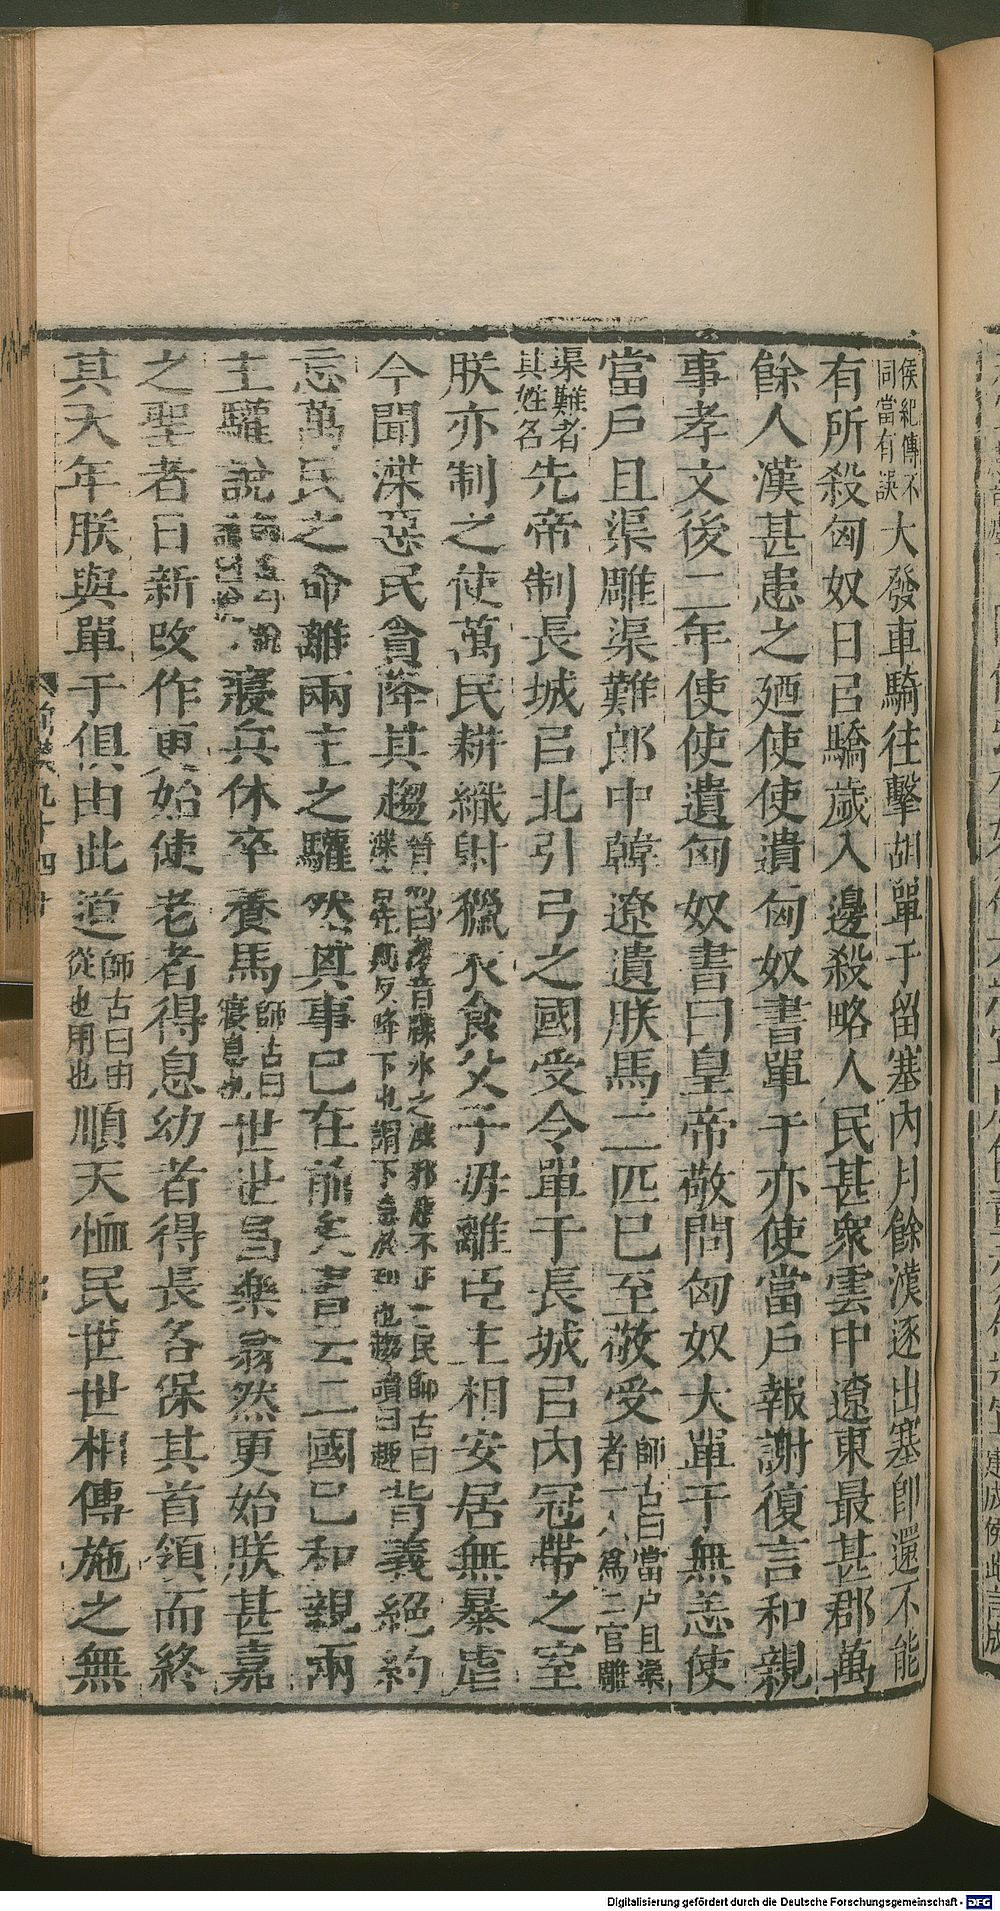 侯紀傳不同當有誤大發車騎往擊胡單于留塞內月餘漢逐出塞卽還不能
有所殺匈奴日㠯驕歲入邊殺略人民甚衆雲中遼東最甚郡萬
餘人漢甚患之廼使使遺匈奴書單于亦使當戶報謝復言和親
事孝文後二年使使遺匈奴書曰皇帝敬問匈奴大單于無恙使
當戶且渠雕渠難郎中韓遼遺朕馬二匹已至敬受師古曰當户且渠者一人爲二官雕
渠難者其姓名先帝制長城㠯北引弓之國受令單于長城㠯內冠帶之室
朕亦制之使萬民耕織射獵衣食父子毋離臣主相安居無暴虐
今聞渫惡民貪降其趨晉灼曰渫音渫水之渫邪惡不正之民師古曰渫先列反降下也謂下意於利也趨讀曰趣背義絕約
忘萬民之命離兩主之驩然其事已在前矣書云二國已和親兩
主驩說寢兵休卒養馬師古曰寢息也世世昌樂翕然更始朕甚嘉
之聖者日新改作更始使老者得息幼者得長各保其首領而終
其天年朕與單于俱由此道師古曰由從也用也順天恤民世世相傳施之無
Digitalisierung gefördert durch die Deutsche Forschungsgemeinschaft - DFG